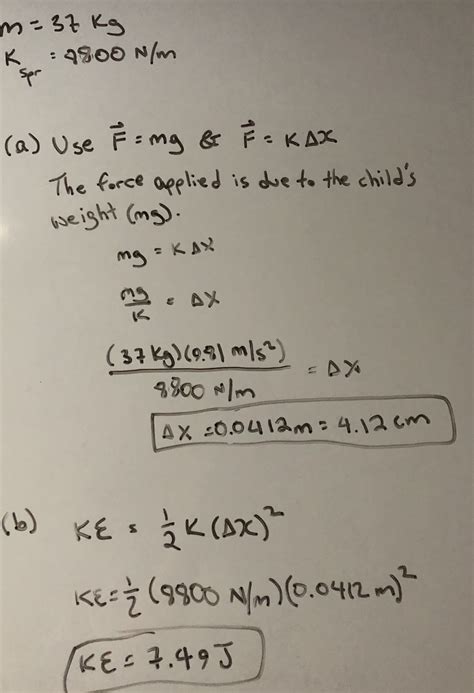 m = 37 Kg
K spr = 8800 N/m
(a) Use F = mg & F = KΔX
The force applied is due to the child's
weight (mg).
mg = KΔX
mg/K = ΔX
(37 Kg)(9.81 m/s²) / 8800 N/m = ΔX
ΔX = 0.0412m = 4.12 cm
(b) KE = 1/2 K (ΔX)²
KE = 1/2 (8800 N/m)(0.0412 m)²
KE = 7.49 J